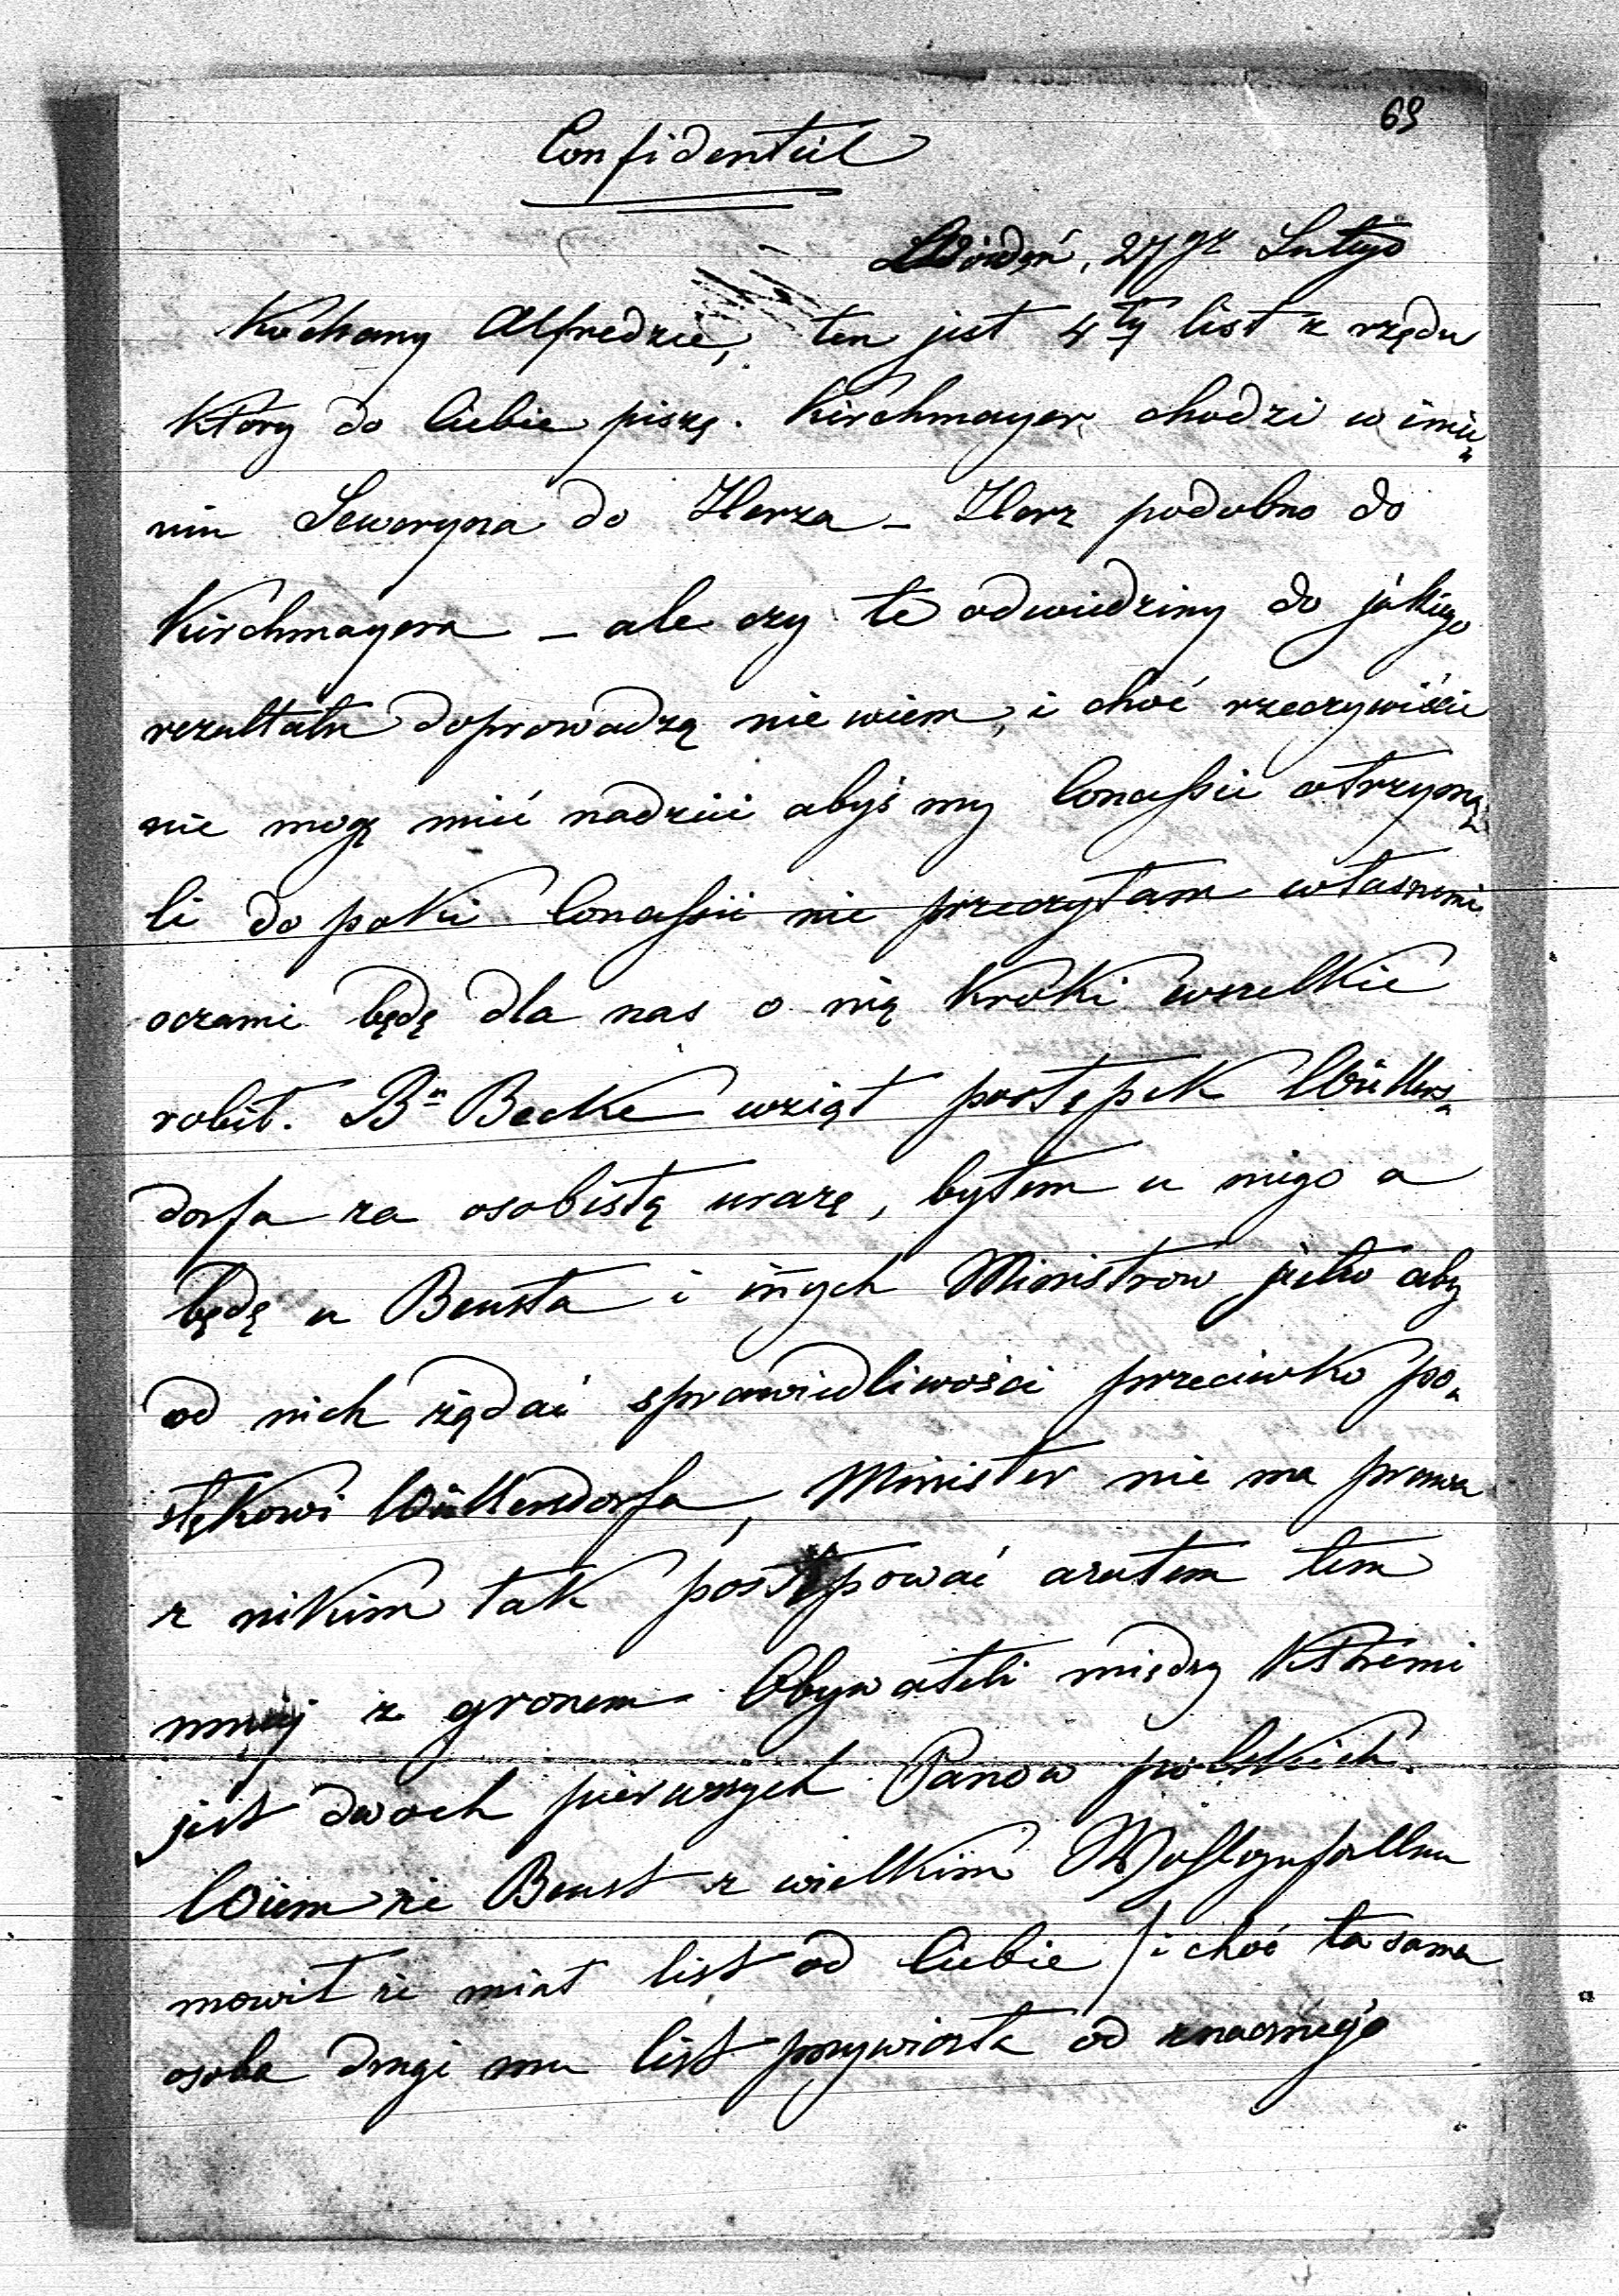 69
Confidentiel
Wiedeń, 27go Lutego
Kochany Alfredzie, ten jest 4ty list z rzędu
który do Ciebie piszę. Kirchmayer chodzi w imie„
niu Seweryna do Herza – Herz podobno do
Kirchmayera – ale czy te odwiedziny do jakiego
rezultatu doprowadzą nie wiem, i choć rzeczywiście
nie mogę mieć nadziei abyś my Concessie otrzyma„
li do poki Concessii nie przeczytam własnemi
oczami będę dla nas o nię kroki wszelkie
robił. Bn Becke wziął postępek Wüllers„
dorfa za osobistą urazę, byłem u niego a
będę u Beusta i inych Ministrow jutro aby
od nich żądać sprawiedliwości przeciwko po„
stękowi Wüllerdorfa, Minister nie ma prawa
z nikim tak postępować a zatem tem
mniej z gronem Obywateli między ktoremi
jest dwoch pierwszych Panow polskich.
Wiem że Beust z wielkim Wohlgefallen
mowił że miał list od Ciebie / i choć ta sama
osoba drugi mu list przywiozła od znacznego